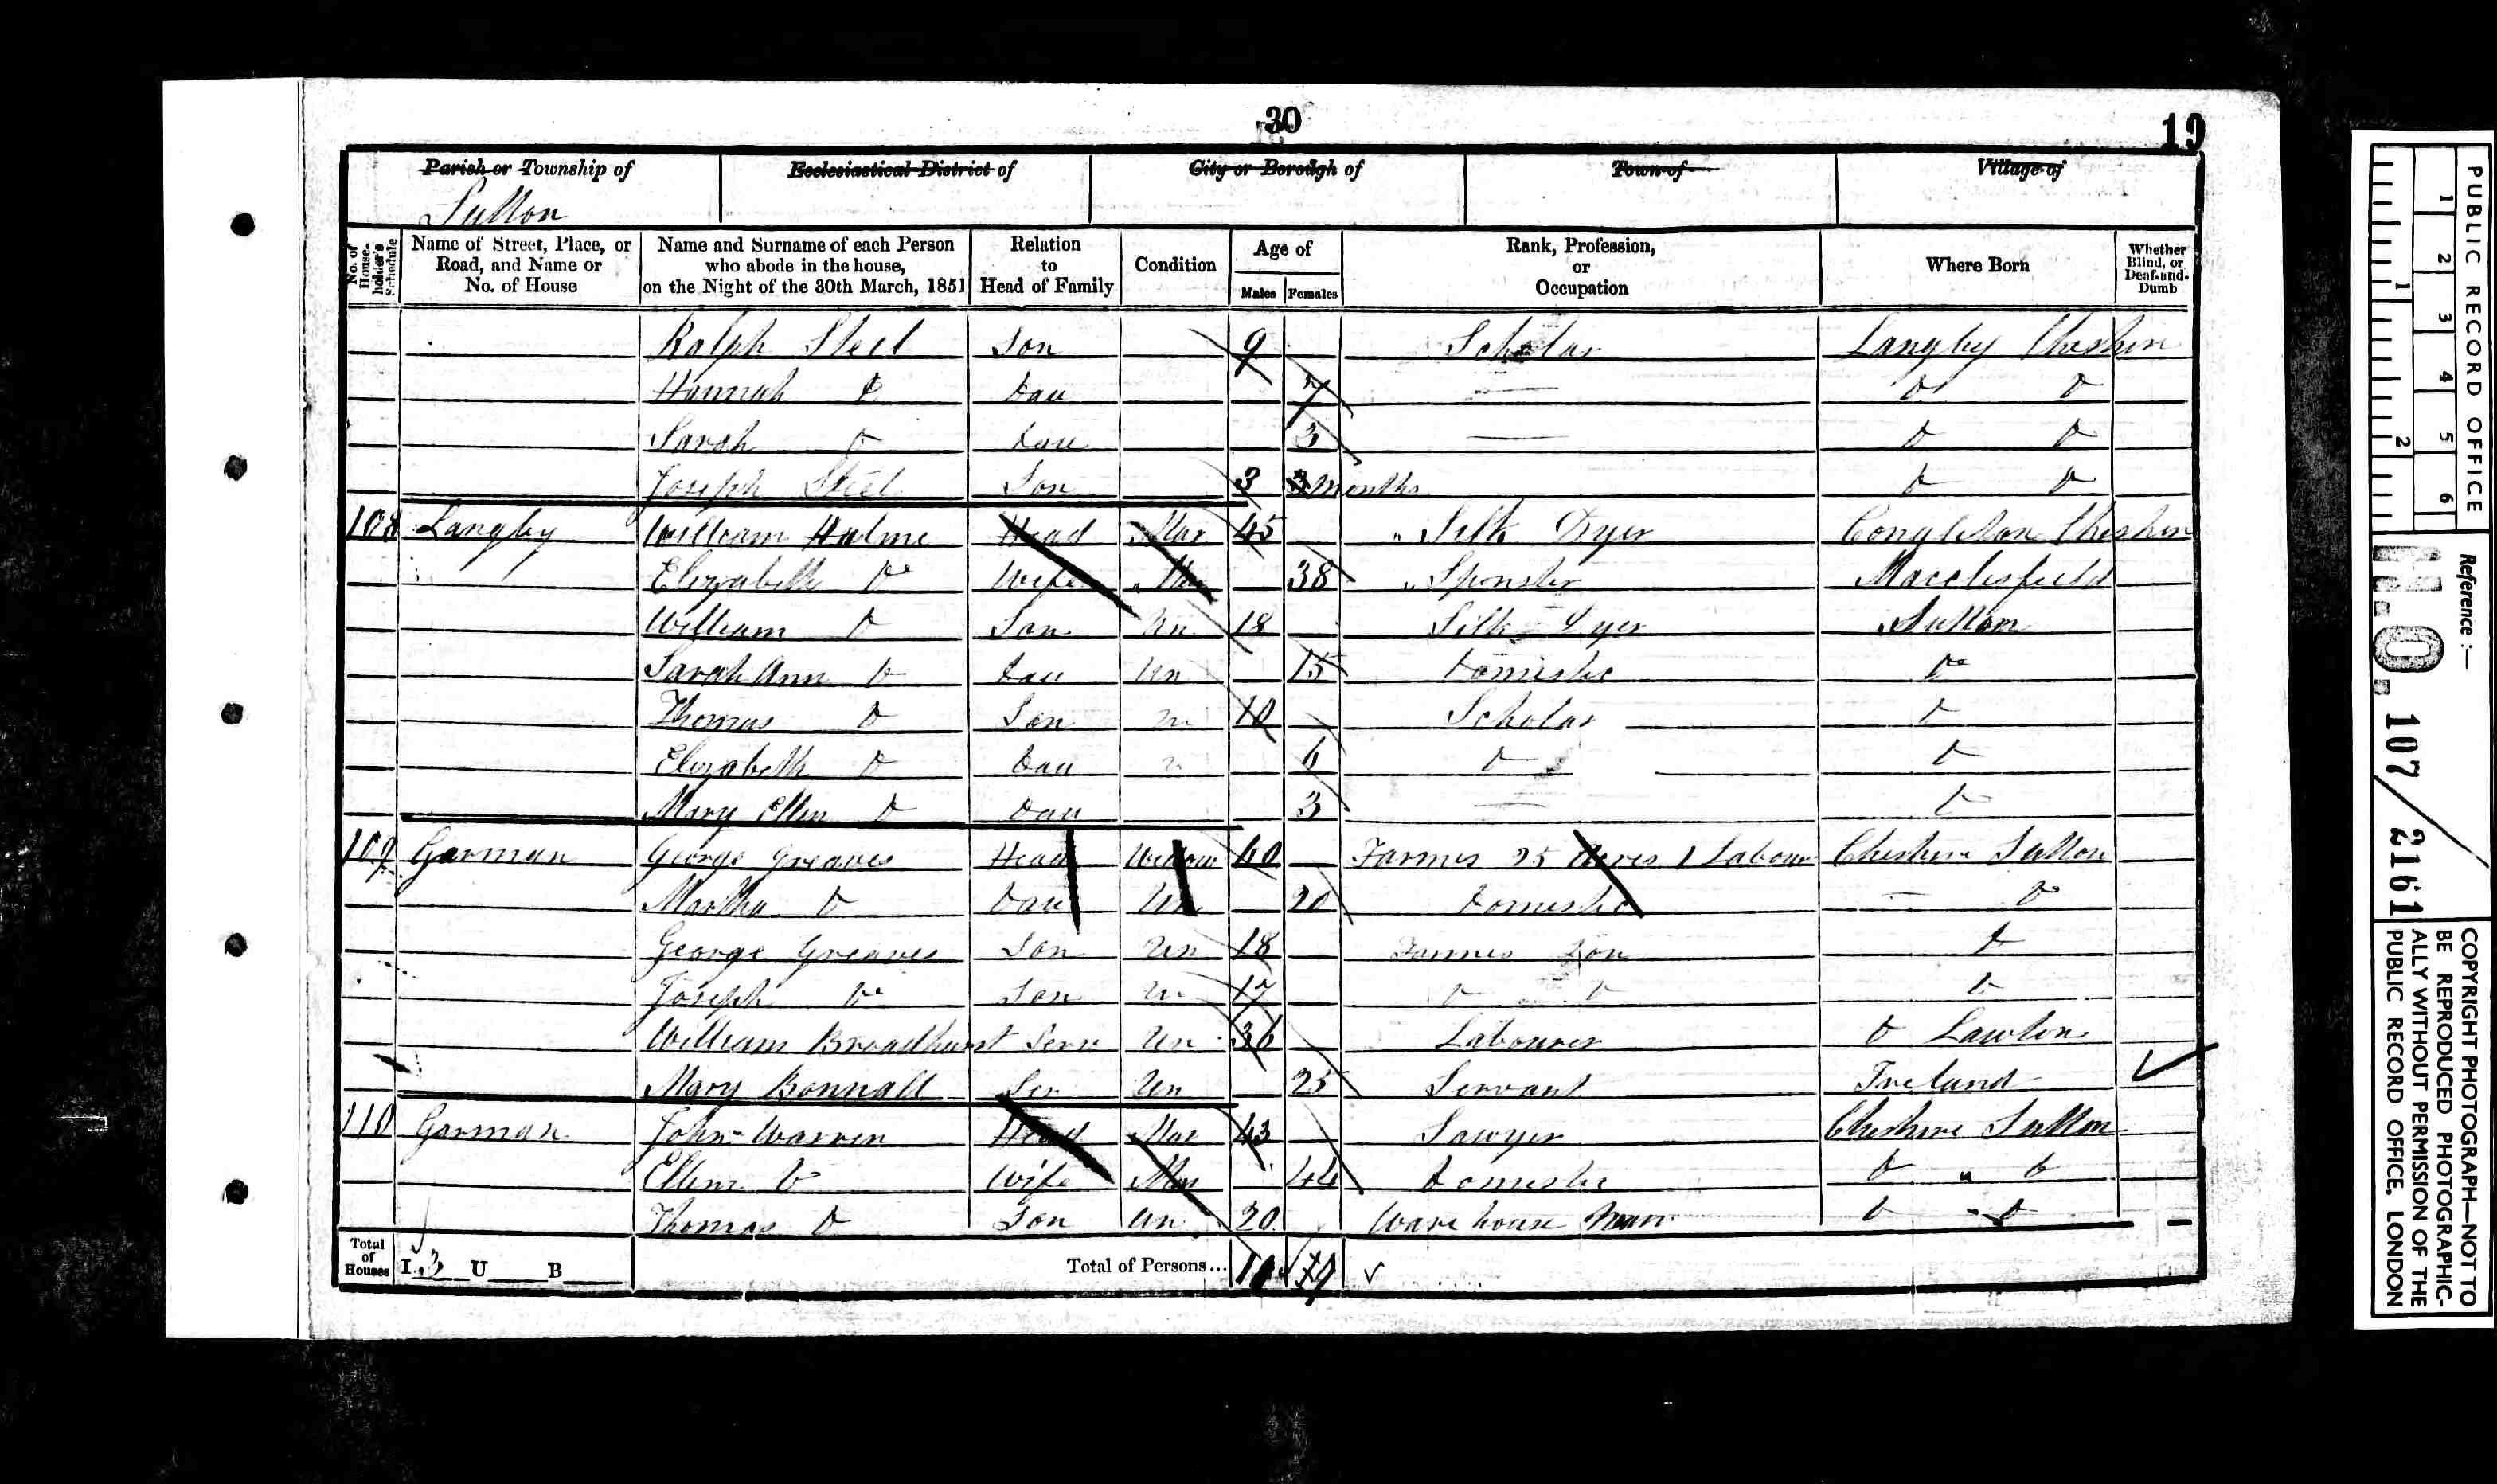 30
19
Parish or Township of
Ecclesiastical District of
City or Borough of
Town of
Village of
Sutton
No. of House-holder's Schedule
Name of Street, Place, or Road, and Name or No. of House
Name and Surname of each Person who abode in the house, on the Night of the 30th March, 1851
Relation to Head of Family
Condition
Age of
Males
Females
Rank, Profession, or Occupation
Where Born
Whether Blind, or Deaf-and-Dumb
Ralph Steel Son 9 Scholar Langley Cheshire
Hannah Do Dau 7 — Do Do
Sarah Do Dau 3 — Do Do
Joseph Steel Son 3 months Do Do
108 Langley William Hulme Head Mar 45 Silk Dyer Congleton Cheshire
Elizabeth Do Wife Mar 38 Spinster Macclesfield
William Do Son Un 18 Silk Dyer Sutton
Sarah Ann Do Dau Un 15 Domestic Do
Thomas Do Son Un 10 Scholar Do
Elizabeth Do Dau 6 Do Do
Mary Ellen Do Dau 3 — Do
109 Gorman George Greaves Head Widow 60 Farmer 25 Acres 1 Labour Cheshire Sutton
Martha Do Dau Un 20 Domestic — Do
George Greaves Son Un 18 Farmers Son Do
Joseph Do Son Un 17 Do Do Do
William Broadhurst Serv Un 36 Labourer Do Lawton
Mary Bonnall Ser Un 25 Servant Ireland
110 Gorman John Warren Head Mar 43 Sawyer Cheshire Sutton
Ellen Do Wife Mar 44 Domestic Do " Do
Thomas Do Son Un 20 Warehouse Man Do - Do
Total of Houses I 3 U B
Total of Persons...
PUBLIC RECORD OFFICE
1 2 3 4 5 6
1 2
Reference :—
H.O. 107/2161
COPYRIGHT PHOTOGRAPH—NOT TO BE REPRODUCED PHOTOGRAPHIC-ALLY WITHOUT PERMISSION OF THE PUBLIC RECORD OFFICE, LONDON